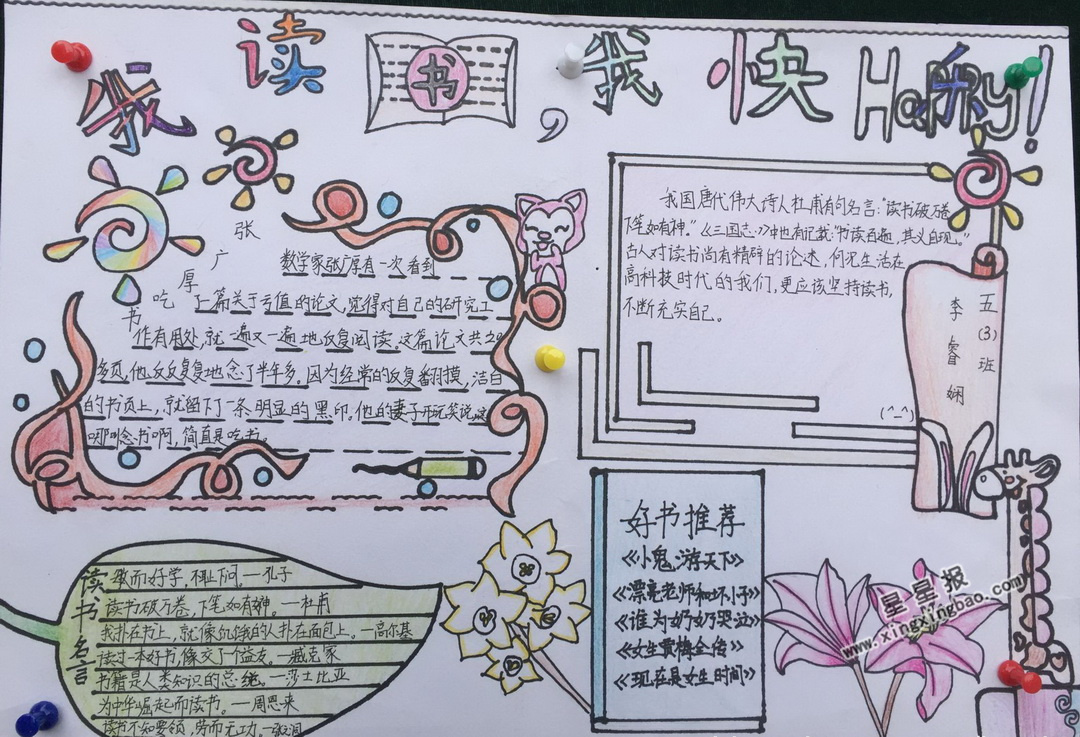 我读书,我快乐
Happy!
张广厚吃书
数学家张广厚有一次看到
一篇关于亏值的论文,觉得对自己的研究工
作有用处,就一遍又一遍地反复阅读。这篇论文共20
多页,他反反复复地念了半年多。因为经常的反复翻摸,洁白
的书页上,就留下了一条明显的黑印,他的妻子开玩笑说,这
哪叫念书啊,简直是吃书。
我国唐代伟大诗人杜甫有句名言:“读书破万卷
下笔如有神。”《三国志》中也有记载:“书读百遍,其义自现。”
古人对读书尚有精辟的论述,何况生活在
高科技时代的我们,更应该坚持读书,
不断充实自己。
(^_^)
五(3)班
李睿娴
读书名言
敏而好学,不耻下问。—孔子
读书破万卷,下笔如有神。—杜甫
我扑在书上,就像饥饿的人扑在面包上。—高尔基
读过一本好书,像交了个益友。—臧克家
书籍是人类知识的总统。—莎士比亚
为中华崛起而读书。—周恩来
读书不知要领,劳而无功。—张
好书推荐
《小鬼,游天下》
《漂亮老师和坏小子》
《谁为奶奶哭泣》
《女生贾梅全传》
《现在是女生时间》
星星报
www.xingxingbao.com